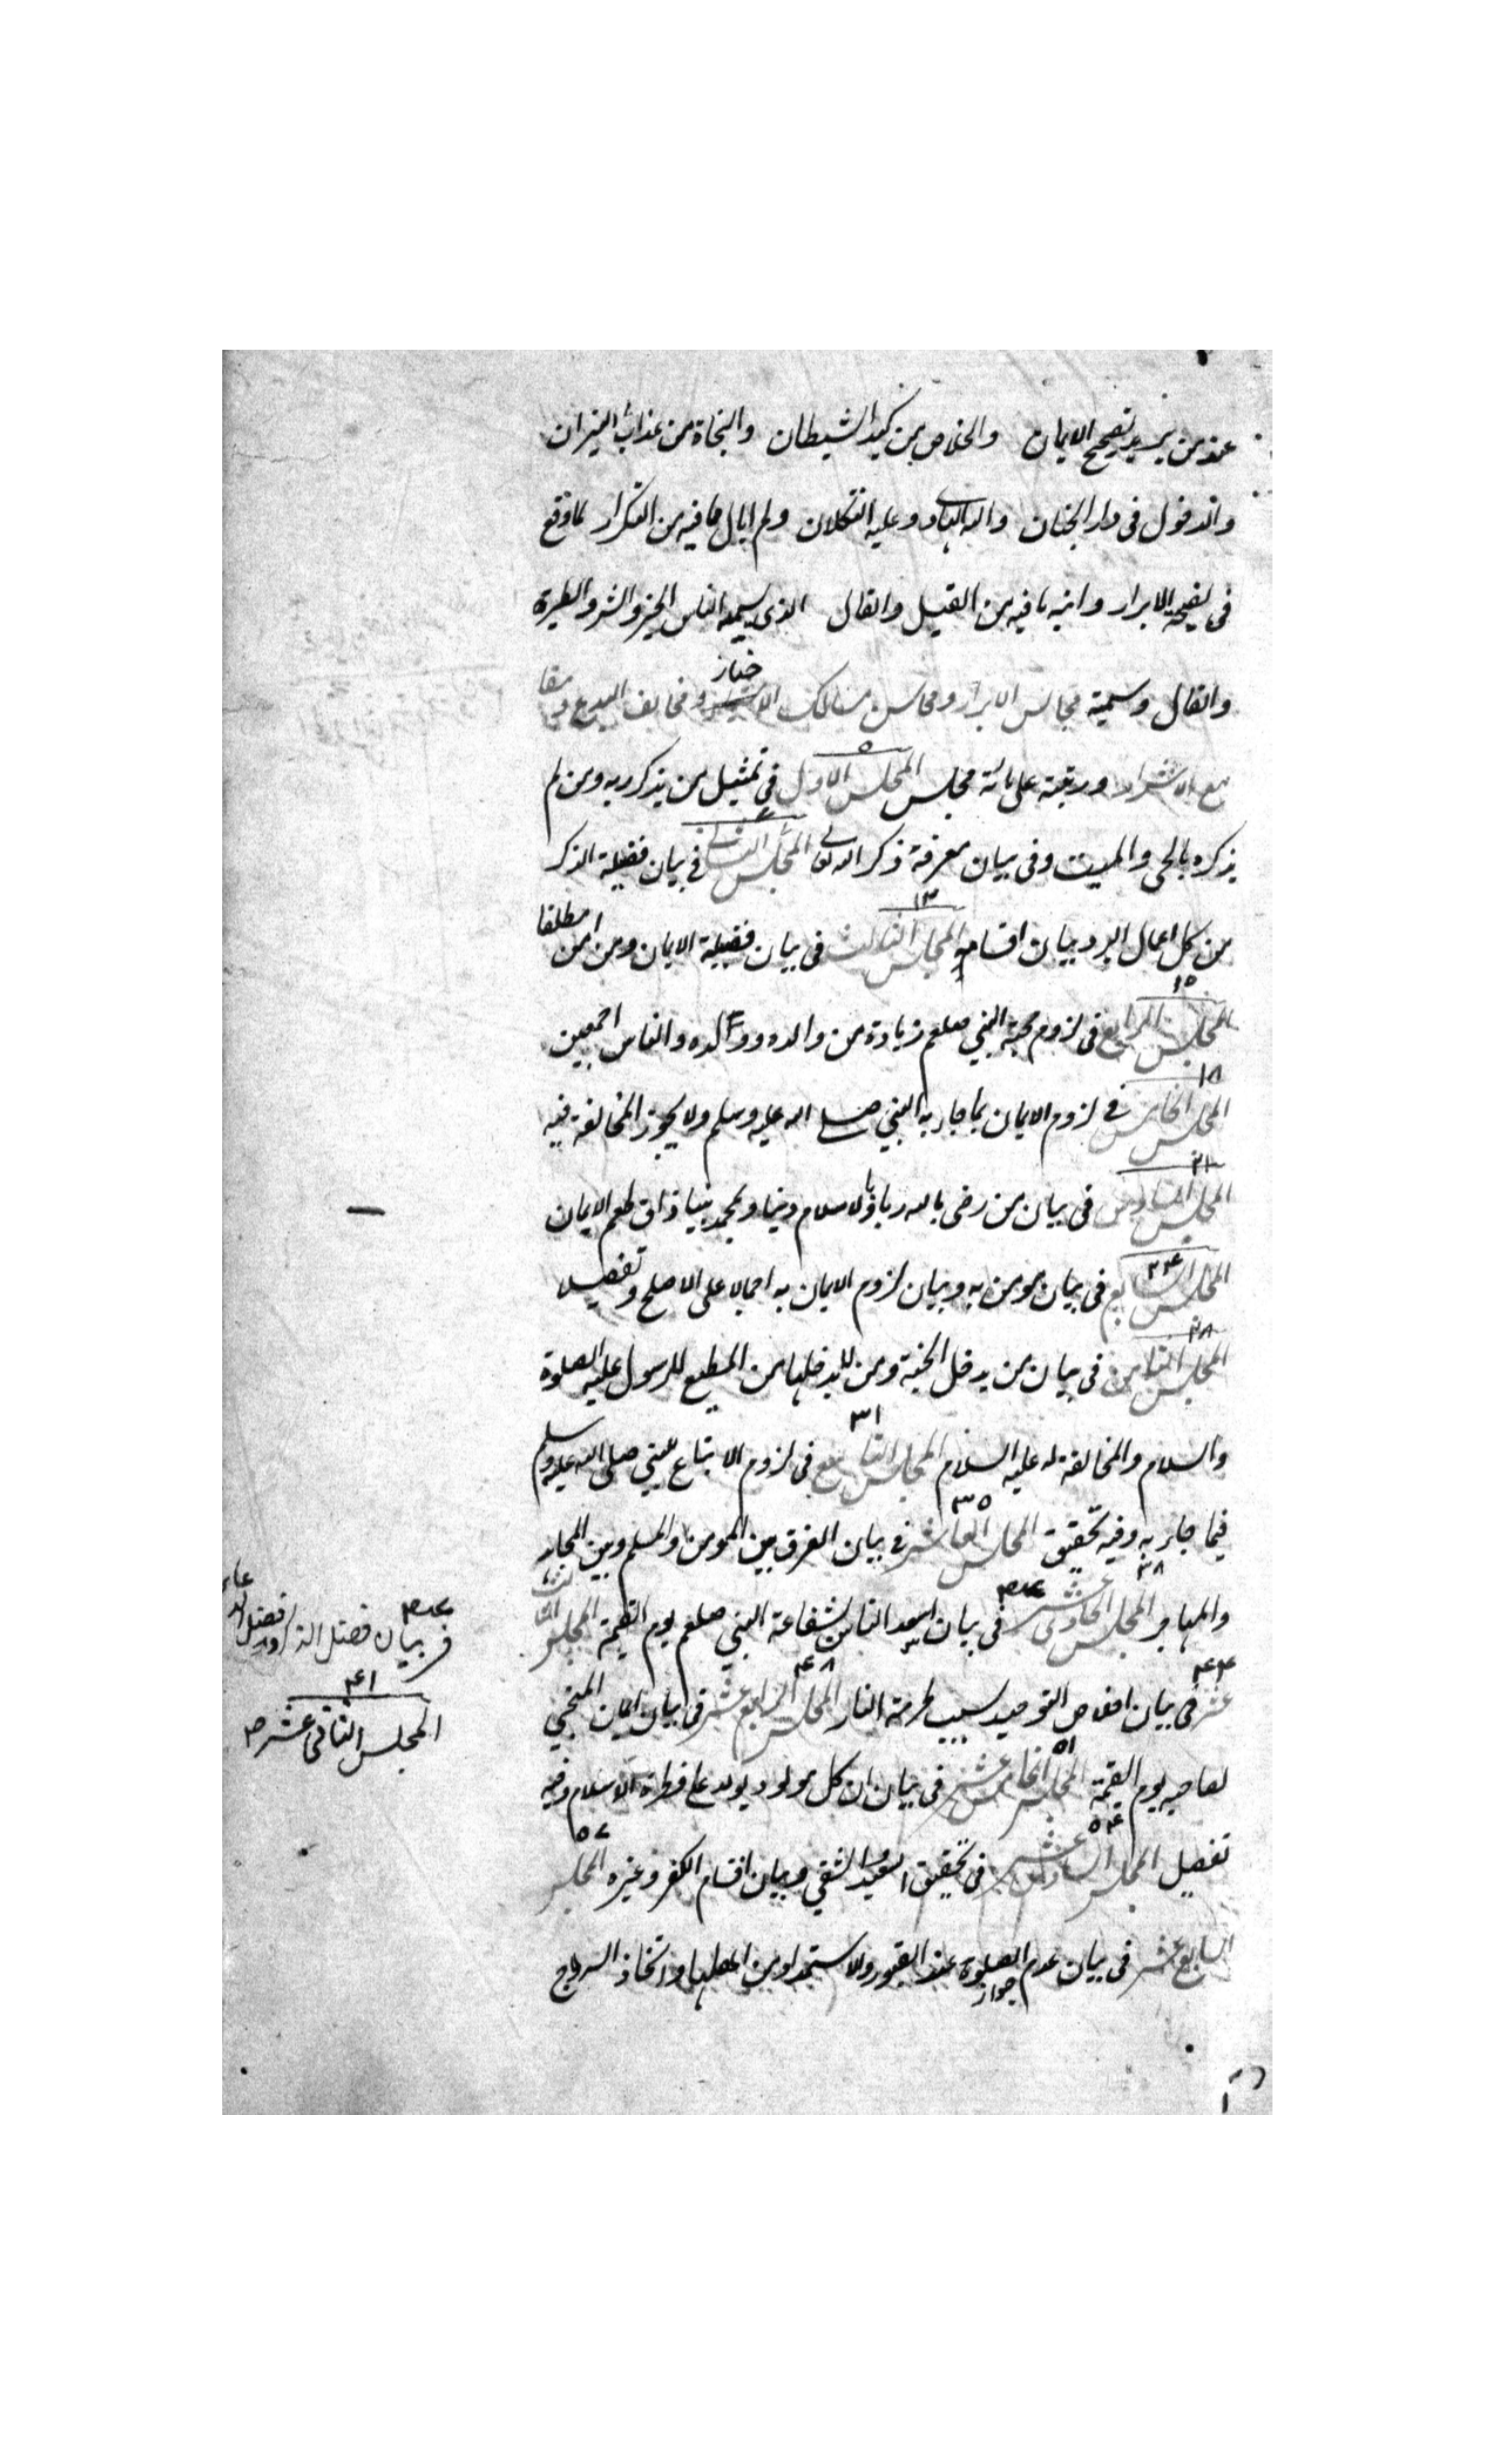 عند من يريد تصحيح الايمان والخلاص من كيد الشيطان والنجاة من عذاب النيران
والدخول فى دار الجنان والله الهادى وعليه التكلان ولم ابال ما فيه من التكرار لما وقع
فى الابرار وانبه ما فيه من القيل والقال الذى يسميه الناس الخير والشر والطيرة
والفال وسميته مجالس الابرار ومحاسن مسالك الاخيار ومحايف البدع ومقا
مع الاشرار ورتبته على مائة مجلس المجلس الاول ٥ فى تمثيل من يذكر ربه ومن لم
يذكره بالحى والميت وفى بيان معرفة ذكر الله تعالى المجلس الثانى فى بيان فضيلة الذكر
من كل اعمال البر وبيان اقسامه المجلس الثالث ١٣ فى بيان فضيلة الايمان ومن امن مطلقا
المجلس الرابع ١٥ فى لزوم محبة النبي صلعم زيادة من والده وولده والناس اجمعين
المجلس الخامس ١٨ فى لزوم الايمان بما جاء به النبي صلى الله عليه وسلم ولا يجوز المخالفة فيه
المجلس السادس ٢١ فى بيان من رضى بالله ربا وبالاسلام دينا وبمحمد نبيا ذاق طعم الايمان
المجلس السابع ٢٤ فى بيان مومن به وبيان لزوم الايمان به اجمالا على الاصلح وتفصيلا
المجلس الثامن ٢٨ فى بيان من يدخل الجنة ومن لا يدخلها من المطيع للرسول عليه الصلوة
والسلام والمخالفة له عليه السلام المجلس التاسع ٣١ فى لزوم الاتباع للنبي صلى الله عليه وسلم
فيما جاء به وفيه تحقيق المجلس العاشر ٣٥ فى بيان الفرق بين المومن والمسلم وبين المجاهد
والمهاجر المجلس الحادى عشر ٣٨ فى بيان اسعد الناس بشفاعة النبي صلعم يوم القيمة المجلس الثالث
عشر ٤٤ فى بيان اخلاص التوحيد سبب لحرمة النار المجلس الرابع عشر ٤٨ فى بيان ايمان المنجي
لصاحبه يوم القيمة المجلس الخامس عشر ٥١ فى بيان ان كل مولود يولد على فطرة الاسلام وفيه
تفصيل المجلس السادس عشر ٥٤ فى تحقيق السعيد والشقي وبيان اقسام الكفر وغيره المجلس ٥٧
السابع عشر فى بيان عدم جواز الصلوة عند القبور والاستمداد من اهلها واتخاذ السروج
فى بيان فضل
٤١
المجلس الثانى عشر